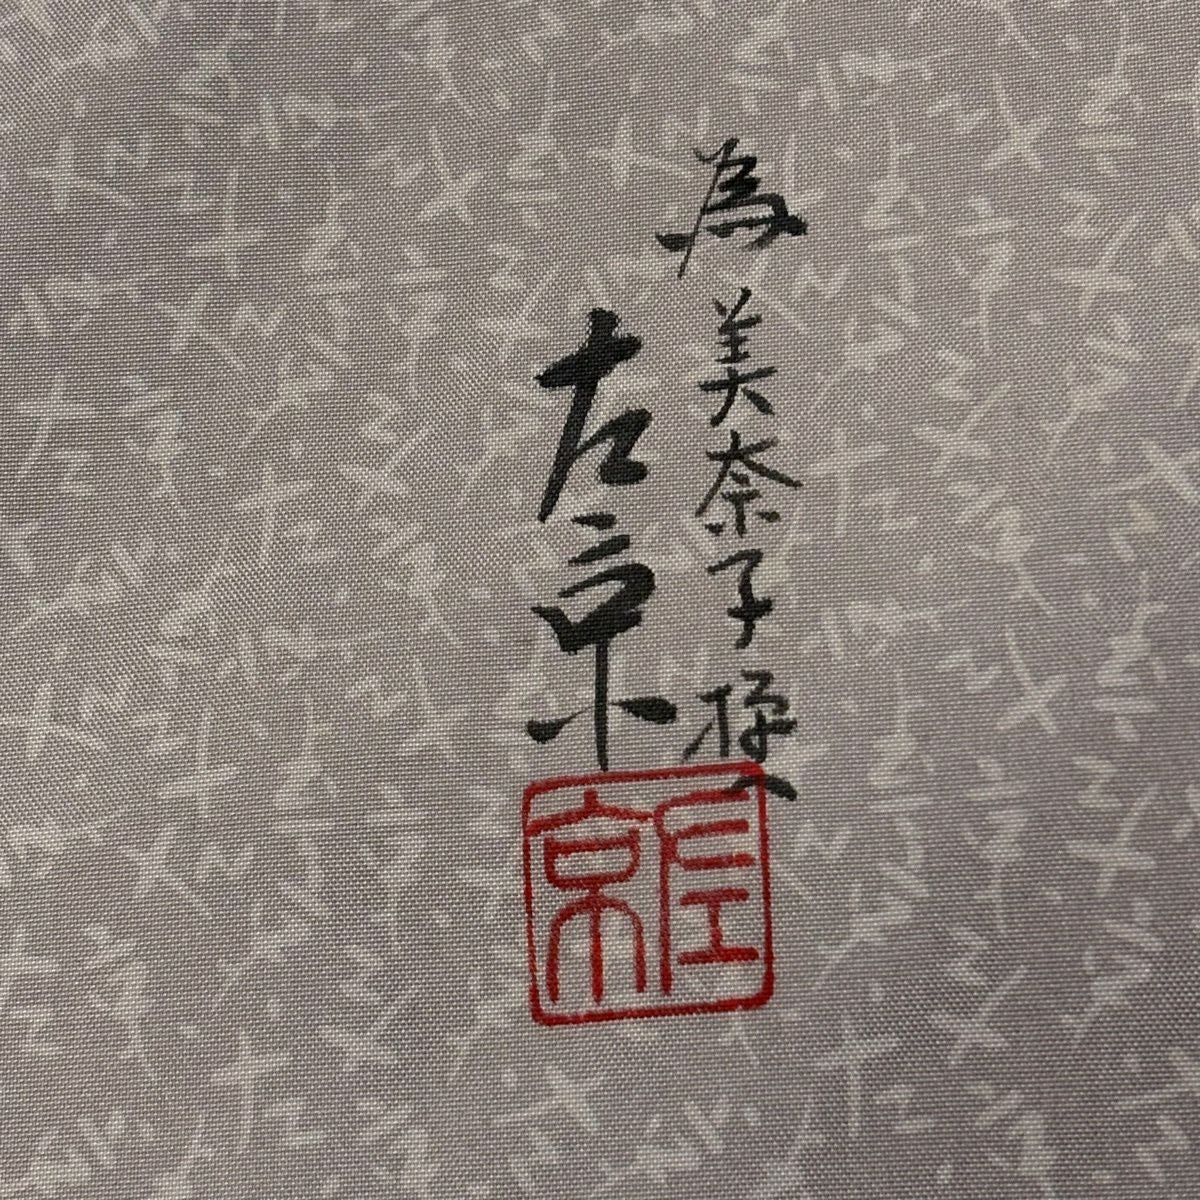 為美奈子様
左京
左京